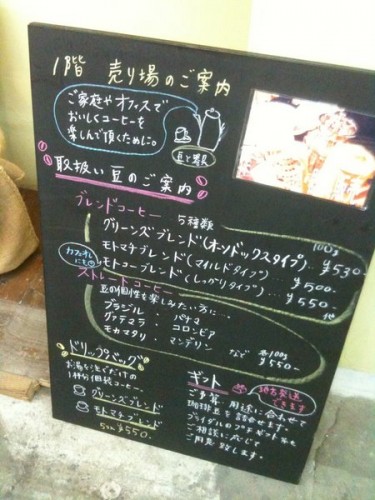 1階 売り場のご案内
ご家庭やオフィスで
おいしくコーヒーを
楽しんで頂くために。
豆と器
取扱い豆のご案内
ブレンドコーヒー 5種類
100g
グリーンズブレンド(オーソドックスタイプ)…¥530
モトマチブレンド(マイルドタイプ)…¥500-
モトコーブレンド(しっかりタイプ)…¥550-
他
カフェオレにも
ストレートコーヒー
豆の個性を楽しみたい方に…
ブラジル・パナマ
グァテマラ・コロンビア
モカマタリ・マンデリン
など 各100g
¥550-
ドリップバッグ
お湯を注ぐだけの
1杯分個装コーヒー
グリーンズブレンド
モトマチブレンド
5コ入¥550-
ギフト
地方発送できます
ご予算、用途に合わせて
珈琲豆を詰合せます。
ブライダルのプチギフト等も
ご相談に応じて
ご用意致します。